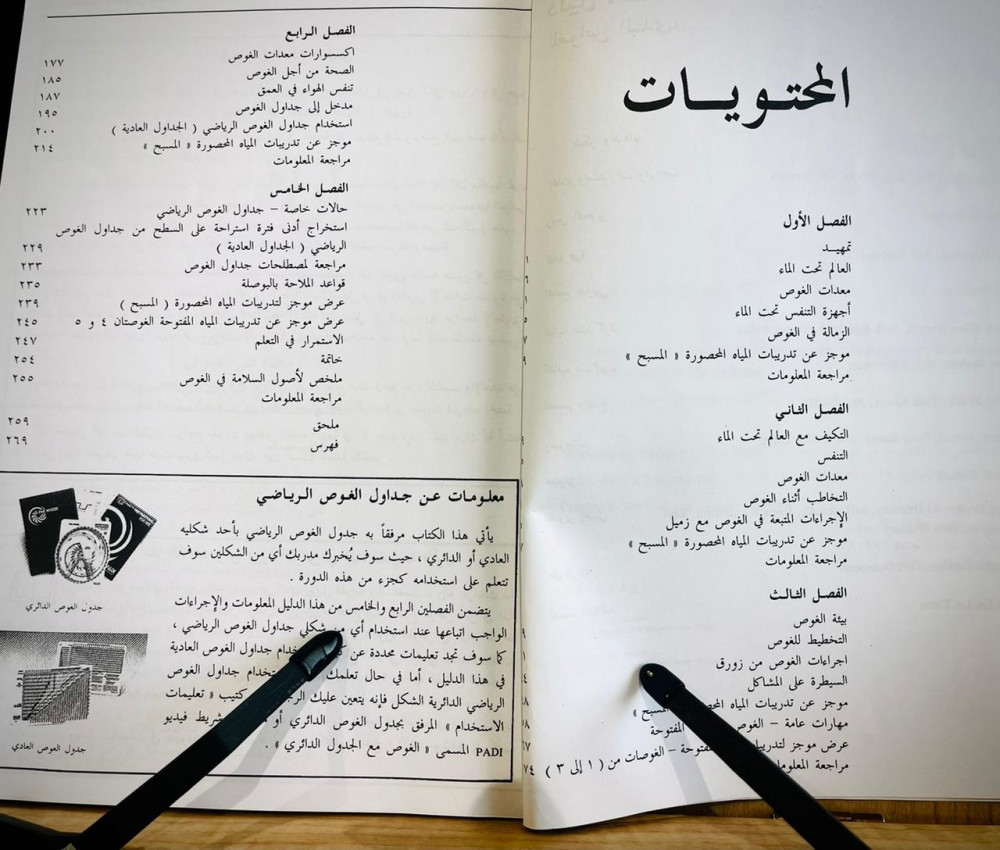 المحتويات
الفصل الأول
تمهيد
العالم تحت الماء
معدات الغوص
أجهزة التنفس تحت الماء
الزمالة في الغوص
موجز عن تدريبات المياه المحصورة « المسبح »
مراجعة المعلومات
الفصل الثاني
التكيف مع العالم تحت الماء
التنفس
معدات الغوص
التخاطب أثناء الغوص
الإجراءات المتبعة في الغوص مع زميل
موجز عن تدريبات المياه المحصورة « المسبح »
مراجعة المعلومات
الفصل الثالث
بيئة الغوص
التخطيط للغوص
اجراءات الغوص من زورق
السيطرة على المشاكل
موجز عن تدريبات المياه المسبح »
مهارات عامة – الغوص المفتوحة
عرض موجز المفتوحة – الغوصات من ( ١ إلى ٣ ) ٧٤
مراجعة
الفصل الرابع
اكسسوارات معدات الغوص ١٧٧
الصحة من أجل الغوص ١٨٥
تنفس الهواء في العمق ١٨٧
مدخل إلى جداول الغوص ١٩٥
استخدام جداول الغوص الرياضي ( الجداول العادية ) ٢٠٠
موجز عن تدريبات المياه المحصورة « المسبح » ٢١٤
مراجعة المعلومات
الفصل الخامس
حالات خاصة – جداول الغوص الرياضي ٢٢٣
استخراج أدنى فترة استراحة على السطح من جداول الغوص
الرياضي ( الجداول العادية ) ٢٢٩
مراجعة لمصطلحات جداول الغوص ٢٣٣
قواعد الملاحة بالبوصلة ٢٣٥
عرض موجز لتدريبات المياه المحصورة ( المسبح ) ٢٣٩
عرض موجز عن تدريبات المياه المفتوحة الغوصتان ٤ و ٥ ٢٤٥
الاستمرار في التعلم ٢٤٧
خاتمة ٢٥٤
ملخص لأصول السلامة في الغوص ٢٥٥
مراجعة المعلومات
ملحق ٢٥٩
فهرس ٢٦٩
معلومات عن جداول الغوص الرياضي
يأتي هذا الكتاب مرفقاً به جدول الغوص الرياضي بأحد شكليه
العادي أو الدائري ، حيث سوف يُخبرك مدربك أي من الشكلين سوف
تتعلم على استخدامه كجزء من هذه الدورة .
يتضمن الفصلين الرابع والخامس من هذا الدليل المعلومات والإجراءات
الواجب اتباعها عند استخدام أي من شكلي جداول الغوص الرياضي ،
كما سوف تجد تعليمات محددة عن جداول الغوص العادية
في هذا الدليل ، أما في حال تعلمك استخدام جداول الغوص
الرياضي الدائرية الشكل فإنه يتعين عليك كتيب « تعليمات
الاستخدام » المرفق بجدول الغوص الدائري أو شريط فيديو
PADI المسمى « الغوص مع الجدول الدائري » .
جدول الغوص الدائري
جدول الغوص العادي